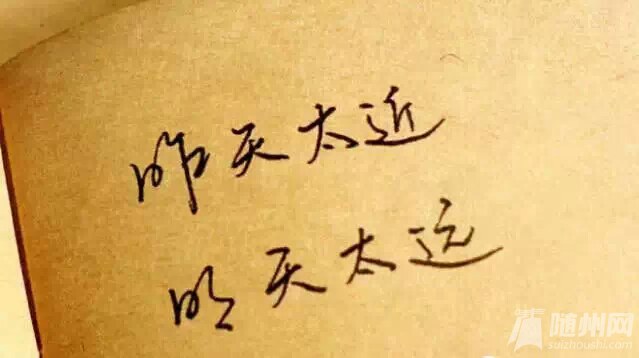 昨天太近
明天太远
随州网
suizhoushi.com